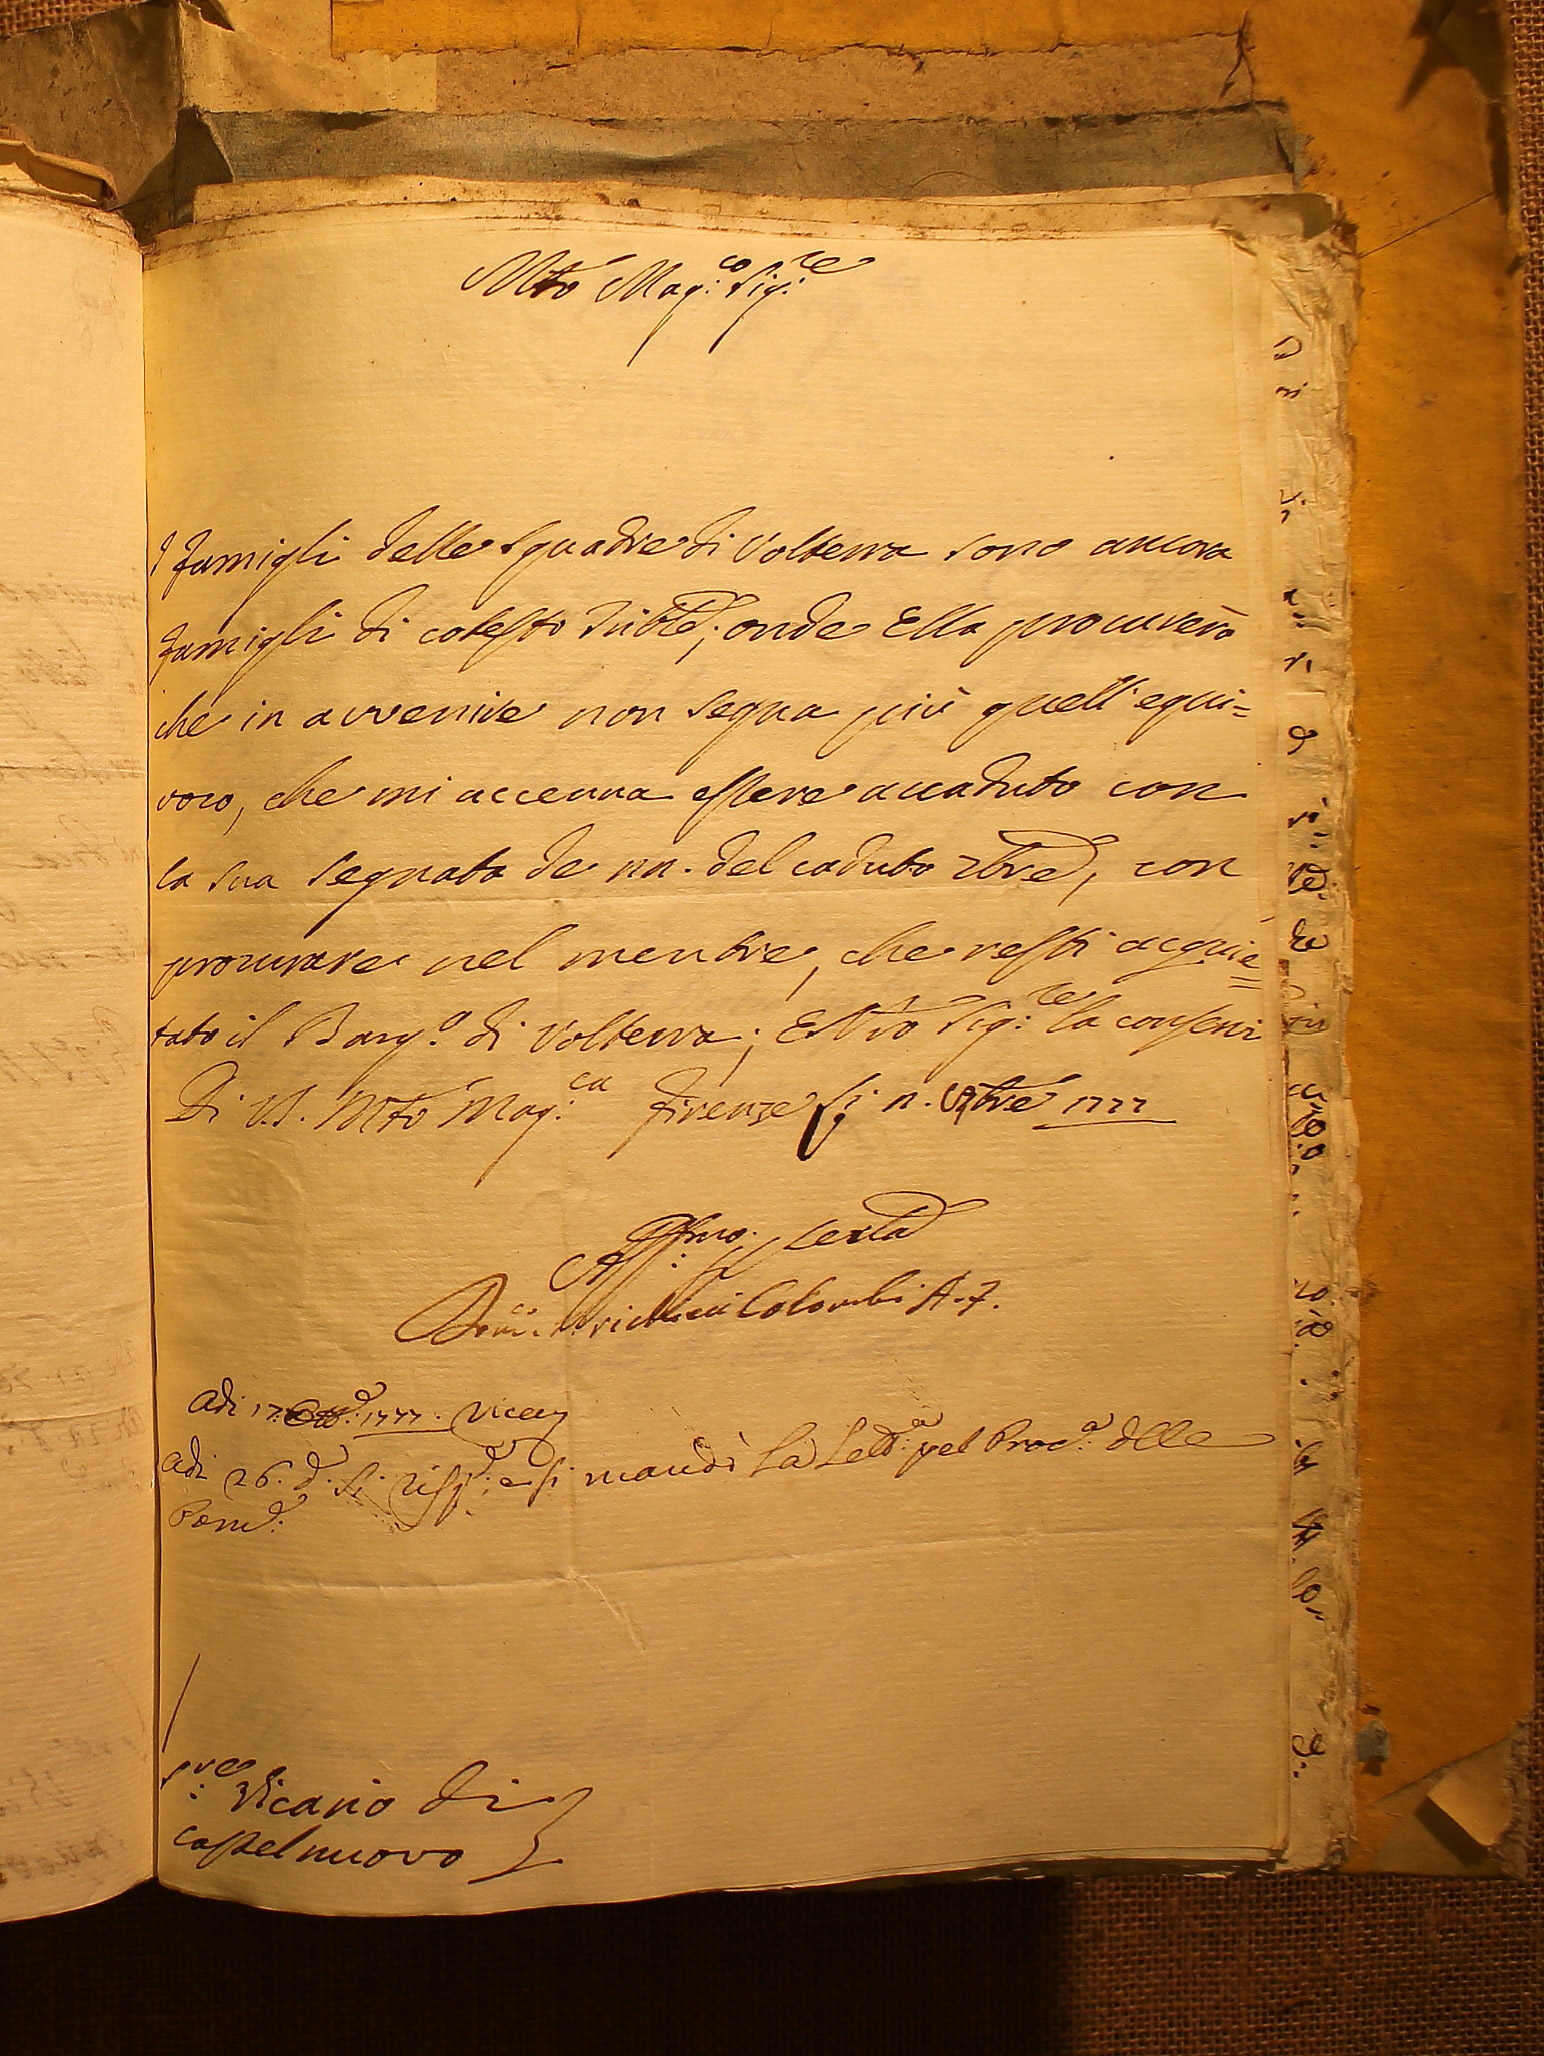 Mto Mag:co Sig:re
I famigli delle Squadre di Volterra sono ancora
famigli di cotesto Trible, onde Ella procurerà
che in avvenire non segua più quell'equi=
voco, che mi accenna essere accaduto con
la sua segnata de nn. del caduto 7bre, con
procurare nel mentre, che resti acquie=
tato il Barg.o di Volterra; E N'ro Sig:re la conservi
Di V.S. Mto Mag:ca Firenze li 11. 8bre 1777
Aff:mo
Dom:co Colombi A. F.
Adi 17. Ott.e 1777.
Adi 26. d.o si risp.e: e si mandò La Lett:a pel Proc.o delle
Pom.e:
S:re Vicario di
Castelnuovo